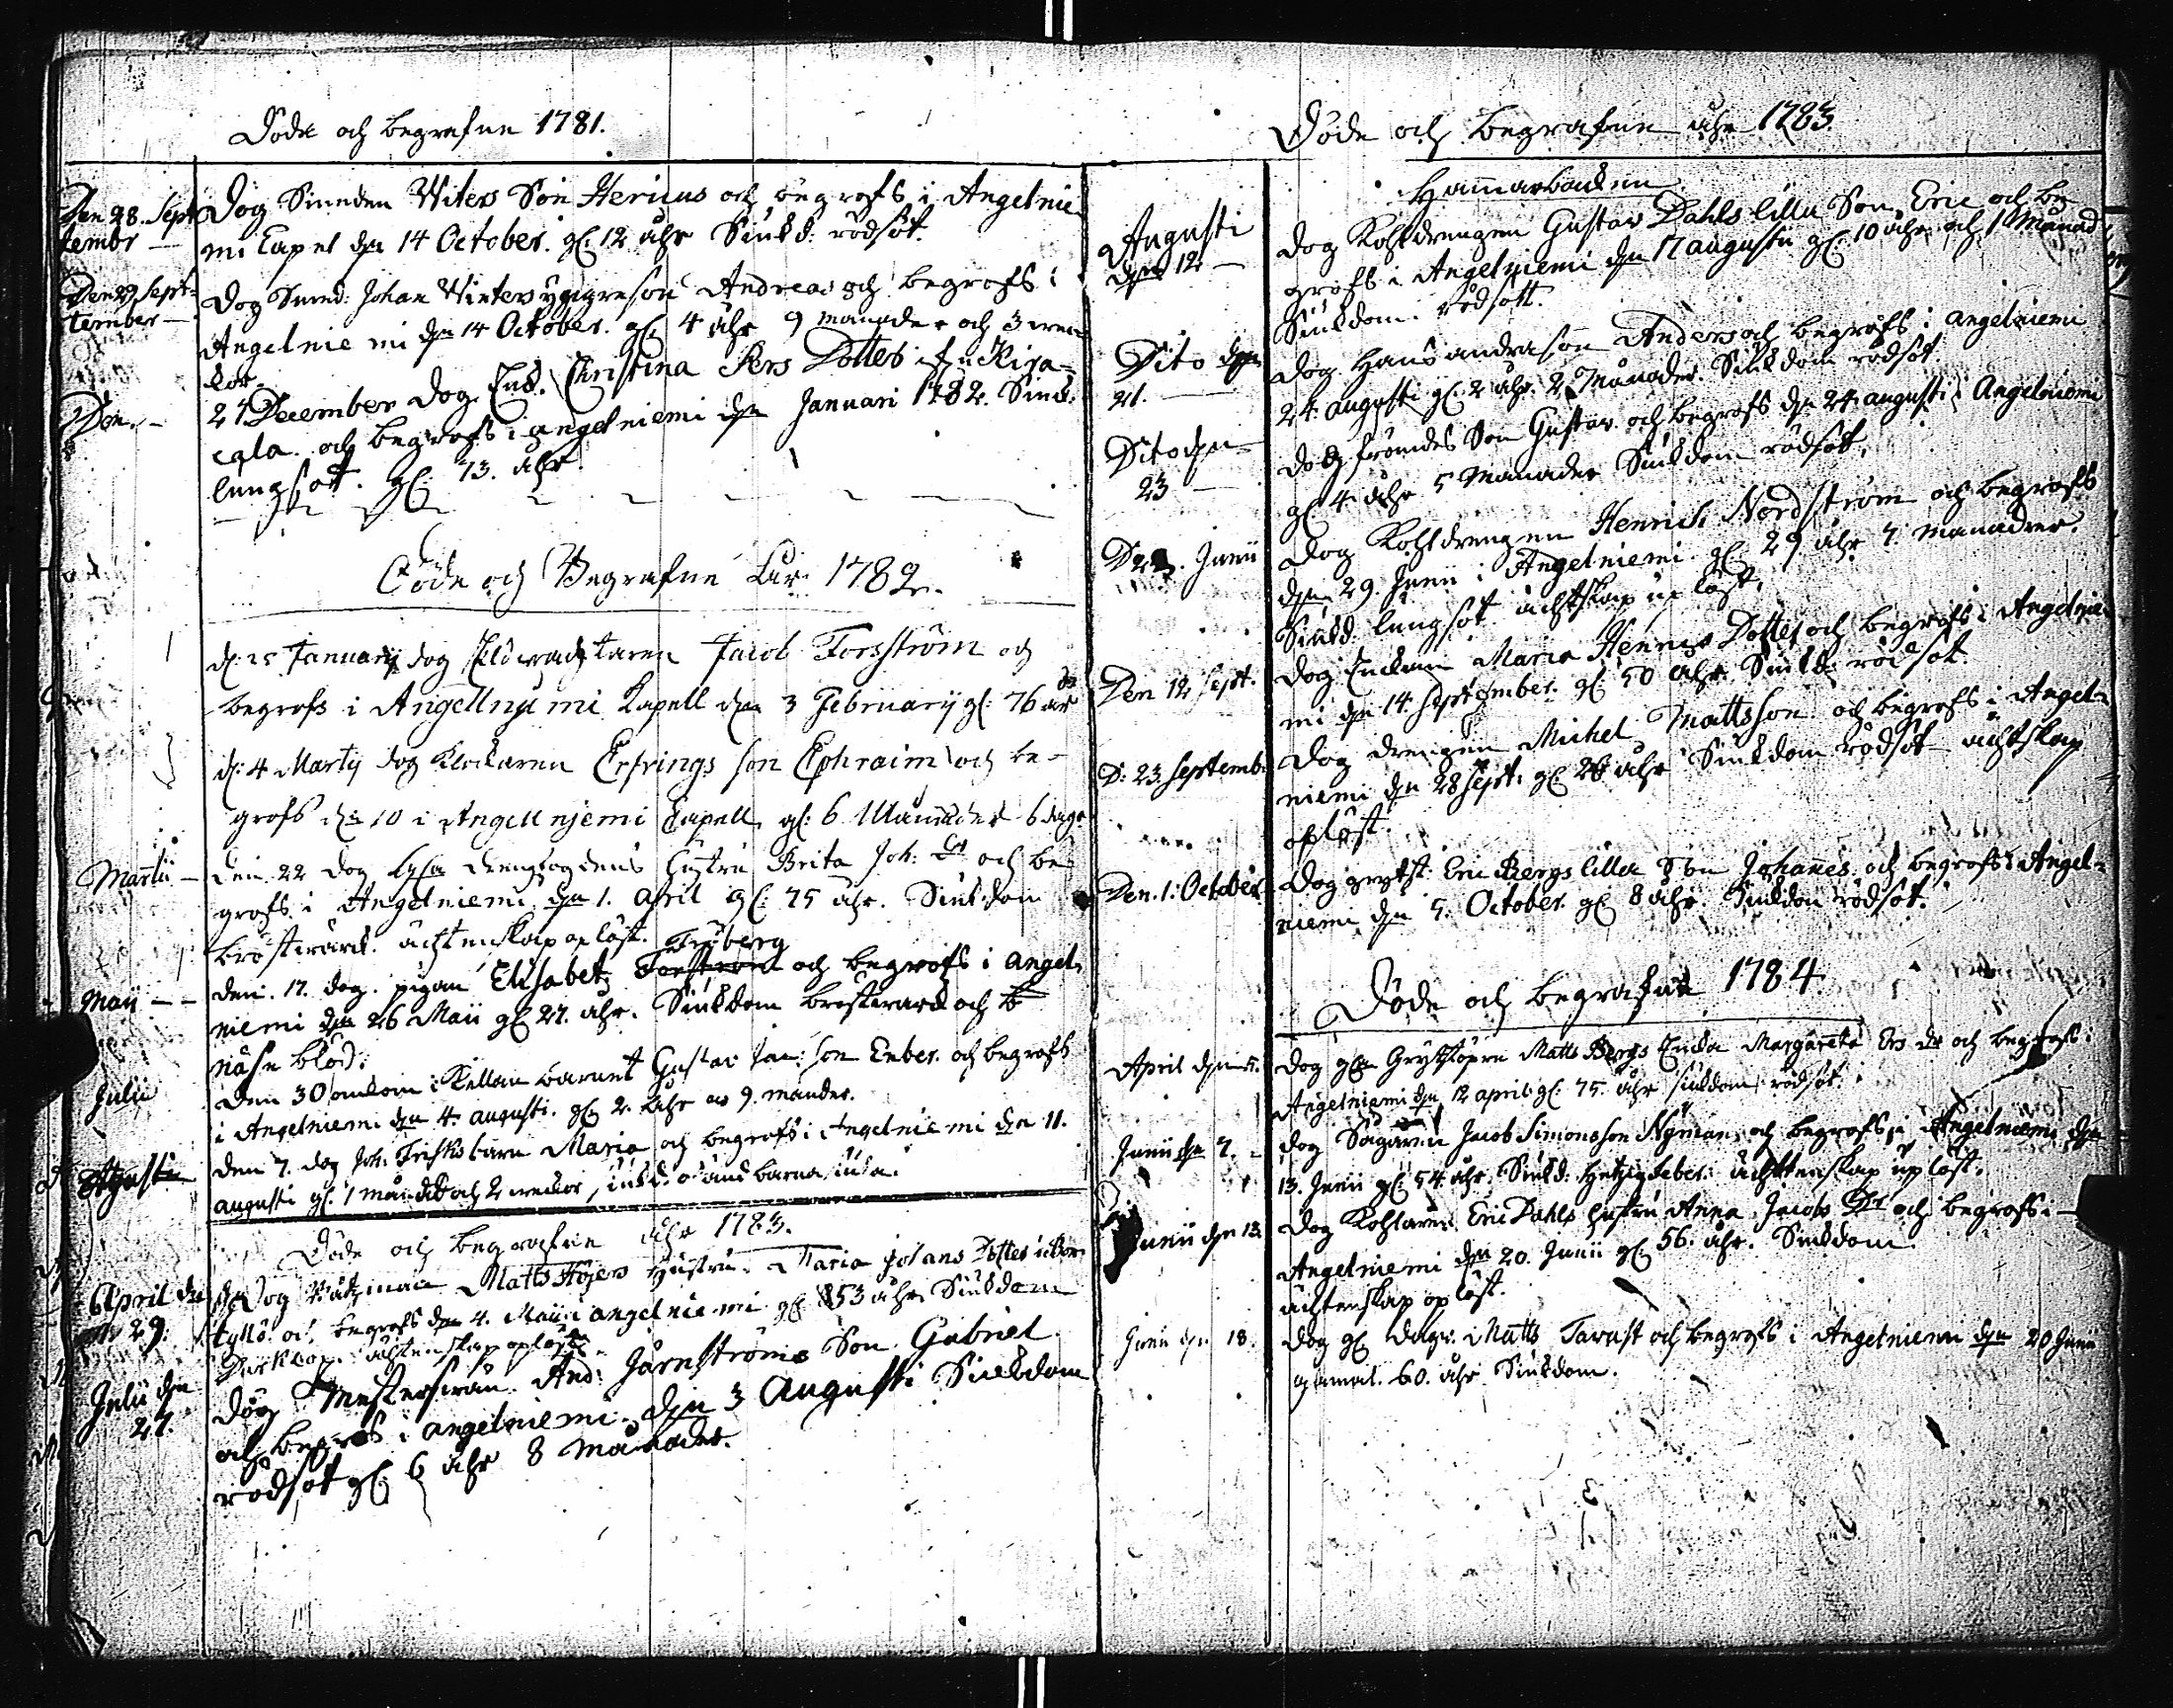 Döde och begrafne 1781.
Den 28. Sept
tembr —
Dog Smeden Witers Son Hericus och begrofs i Angelnie
mi Capel den 14 October. gl: 12 åhr Siukd: rödsot.
Den 29 Sept-
tember —
Dog Smed: Johan Winters yngre son Andreas och begrofs i
Angelniemi den 14 October. gl 4 åhr 9 månader och 3 wec
kor.
Den. —
27 December dog Enk. Christina Pers Dotter ifr Kira-
cala och begrofs i angelniemi den Januari 1782. Siukd:
lungsot. gl: 73. åhr.
Döde och Begrafne Åhr 1782.
d: 25 January dog Jacob Forsström och
begrofs i Angellnjemi Kapell den 3 February gl: 76 år
d: 4 Martij dog Klockaren Erfrings son Ephraim och be-
grofs d: 10 i Angellnjemi Capell gl: 6 Månader 6 dagr
Martii —
den 22 dog drengfogdens Hustru Brita Joh: Dr och be-
grofs i Angelniemi den 1. April gl: 75 åhr. Siukdom
bröstwärk. ächtenskap oplöst.
Maii —
Friberg
den. 17. dog. pigan Elisabet Forström och begrofs i angel-
niemi den 26 Maii gl 27. åhr. Siukdom bröstwärk och
näse blod:
Julii
den 30 barnet Gustav Jac: son Enber. och begrofs
i Angelniemi den 4. augusti. gl 2. åhr 9. månader.
Agusti
den 7. dog Joh. Frisks barn Maria och begrofs i Angelniemi den 11.
augusti gl: 1 månad och 2 weckor, siukd. barna siuka.
Döde och begrafne åhr 1783.
April den
29.
Dog Matts Höjers Hustru. Maria Johans Dotter
och begrofs den 4. Maii i angelniemi gl 53 åhr Siukdom
ächtenskap oplöst.
Julii den
27.
dog And: Järnströms Son Gabriel
och begrofs i angelniemi den 3 Augusti Siukdom
rödsot gl 6 åhr 8 månader.
Döde och begrafne åhr 1783
Hamarbacken
Augusti
den 12 —
Dog Kohldrengen Gustav Dahls lilla Son Eric och be
grofs i Angelniemi den 17 augusti gl: 10 åhr och 1 Månad
Siukdom rödsott.
Dito den
21. —
dog Hans andra son Anders och begrofs i angelniemi
24 augusti gl: 2 åhr. 2 Månader. Siukdom rödsot
Dito den
23 —
dog Son Gustav och begrofs den 24 augusti i Angelniemi
gl: 4 åhr 5 Månader Siukdom rödsot.
Junii
Dog Kohldrengen Henrich Nordström och begrofs
den 29. Junii i Angelniemi gl: 29 åhr 7. månader.
Siukd: lungsot ächtskap up löst.
Den 12 Sept.
dog Enkan Maria Henrics Dotter och begrofs i Angelnie-
mi den 14. September. gl: 50 åhr Siukd: rödsot
D: 23 Septemb.
dog drengen Michel Mattsson och begrofs i Angel-
niemi den 28 Sept. gl 28 åhr Siukdom rödsot ächtskap
oplöst.
Den. 1. October
Dog Eric Bergs lilla Son Johannes och begrofs i Angel-
niemi den 5. October. gl 8 åhr. Siukdom rödsot.
Döde och begrafne 1784
April den 5.
dog Matts Bergs Enka Margareta Ers Dr och begrofs i
Angelniemi den 12 april. gl: 75. åhr siukdom rödsot.
Junii den 7. —
dog Sågaren Jacob Simonsson Nyman och begrofs i Angelniemi den
13. Junii gl: 54 åhr. Siukd: Hetzig feber: ächtenskap uplöst.
Junii den 13
dog Kohlaren Eric Dahls hustru Anna Jacobs Dr och begrofs i —
Angelniemi den 20. Junii gl: 56. åhr. Siukdom
ächtenskap oplöst.
Junii den 18.
dog gl Matts Tavast och begrofs i Angelniemi den 20 Junii
gamal. 60. åhr Siukdom.